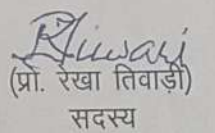 RTiwari
(प्रो. रेखा तिवाड़ी)
सदस्य